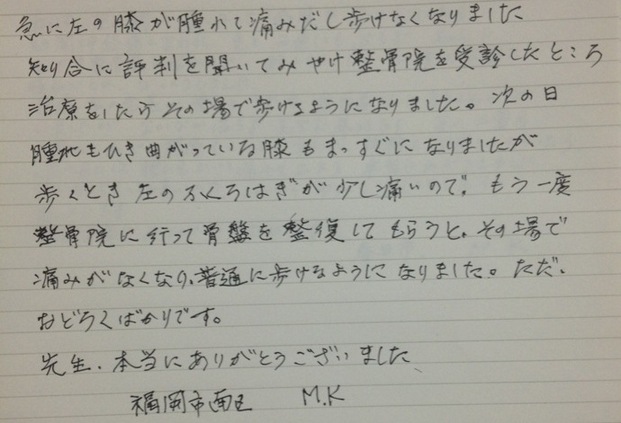 急に左の膝が腫れて痛みだし歩けなくなりました
知り合に評判を聞いてみやけ整骨院を受診したところ
治療をしたらその場で歩けるようになりました。次の日
腫れもひき曲がっていた膝もまっすぐになりましたが
歩くとき左のふくらはぎが少し痛いので。もう一度
整骨院に行って骨盤を整復してもらうと、その場で
痛みがなくなり、普通に歩けるようになりました。ただ、
おどろくばかりです。
先生、本当にありがとうございました、
福岡市南区 M.K